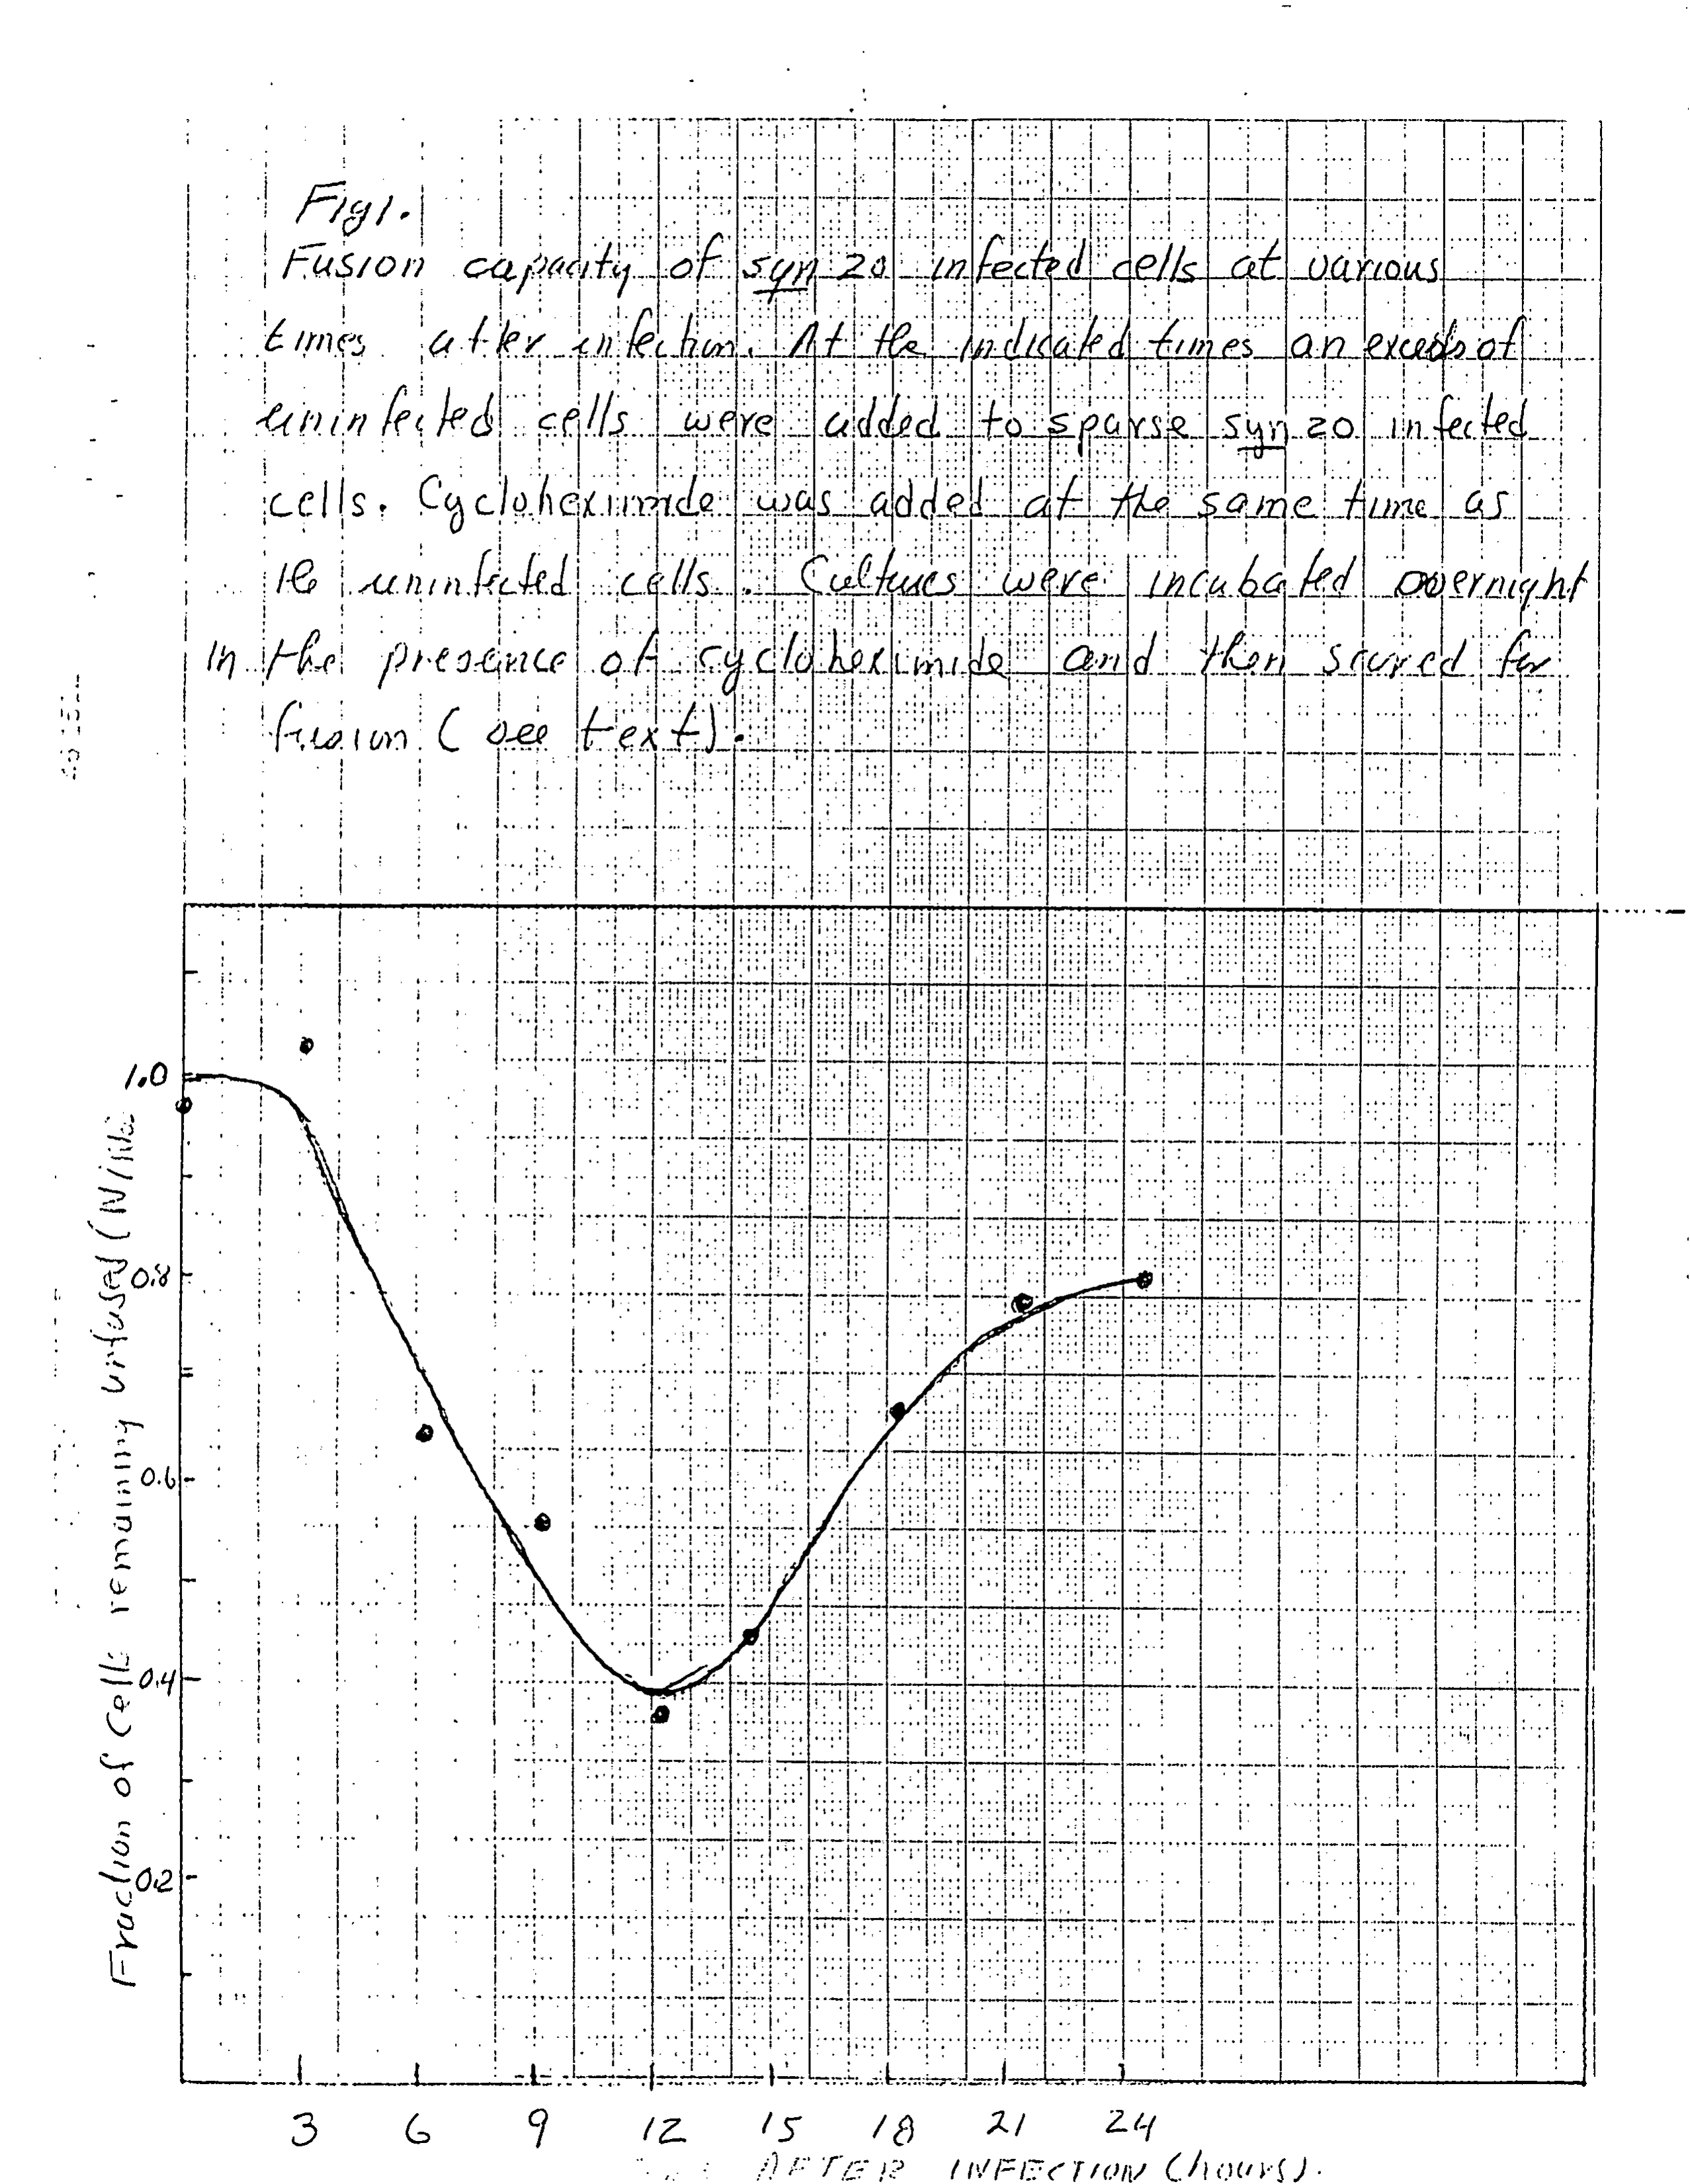 Fig 1.
Fusion capacity of syn 20 infected cells at various
times after infection. At the indicated times an excess of
uninfected cells were added to sparse syn 20 infected
cells. Cycloheximide was added at the same time as
the uninfected cells. Cultures were incubated overnight
in the presence of cycloheximide and then scored for
fusion (see text).
1.0
0.8
0.6
0.4
0.2
Fraction of Cells remaining unfused
3 6 9 12 15 18 21 24
AFTER INFECTION (hours).